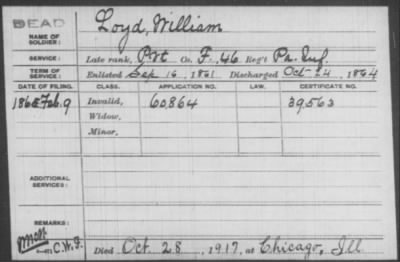 DEAD
NAME OF SOLDIER: Loyd, William
SERVICE: Late rank, Pvt Co. F, 46 Reg't Pa. Inf.
TERM OF SERVICE: Enlisted Sep 16, 1861 Discharged Oct 24, 1864
DATE OF FILING. CLASS. APPLICATION NO. LAW. CERTIFICATE NO.
Feb. 9 Invalid, 60864 39563
Widow,
Minor,
ADDITIONAL SERVICES:
REMARKS:
C.W.F. Died Oct. 28, 1917, at Chicago, Ill